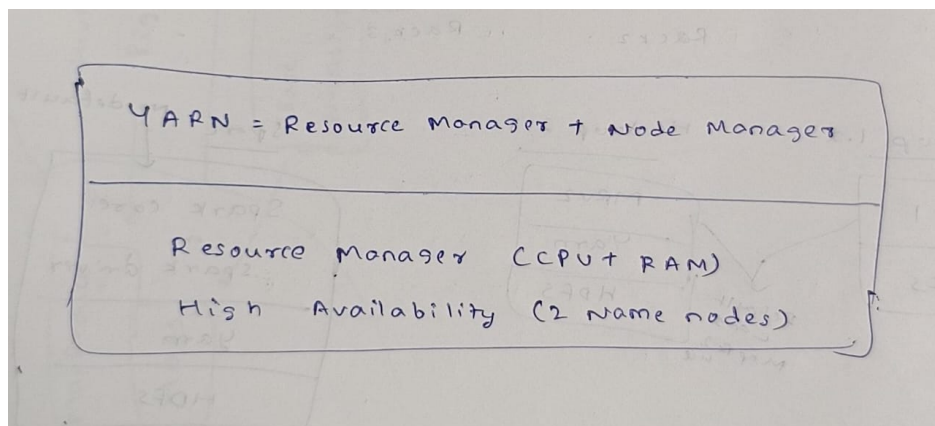 YARN = Resource Manager + Node Manager
Resource Manager (CPU + RAM)
High Availability (2 Name nodes)